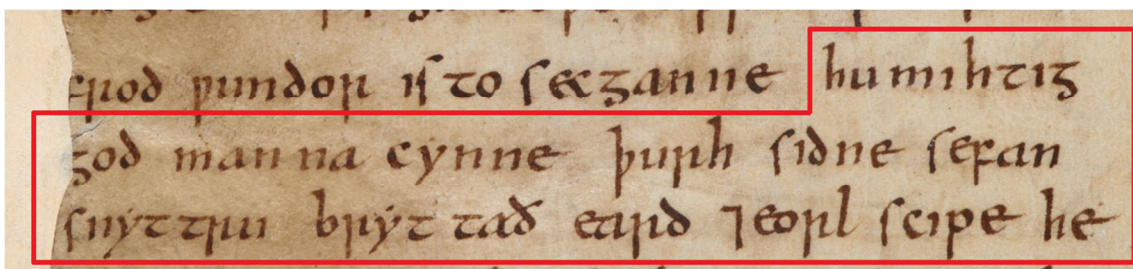 frod ƿundor is to secganne hu mihtig
god manna cynne þurh sidne sefan
snẏttrui brẏttað eard ⁊eorl scipe he